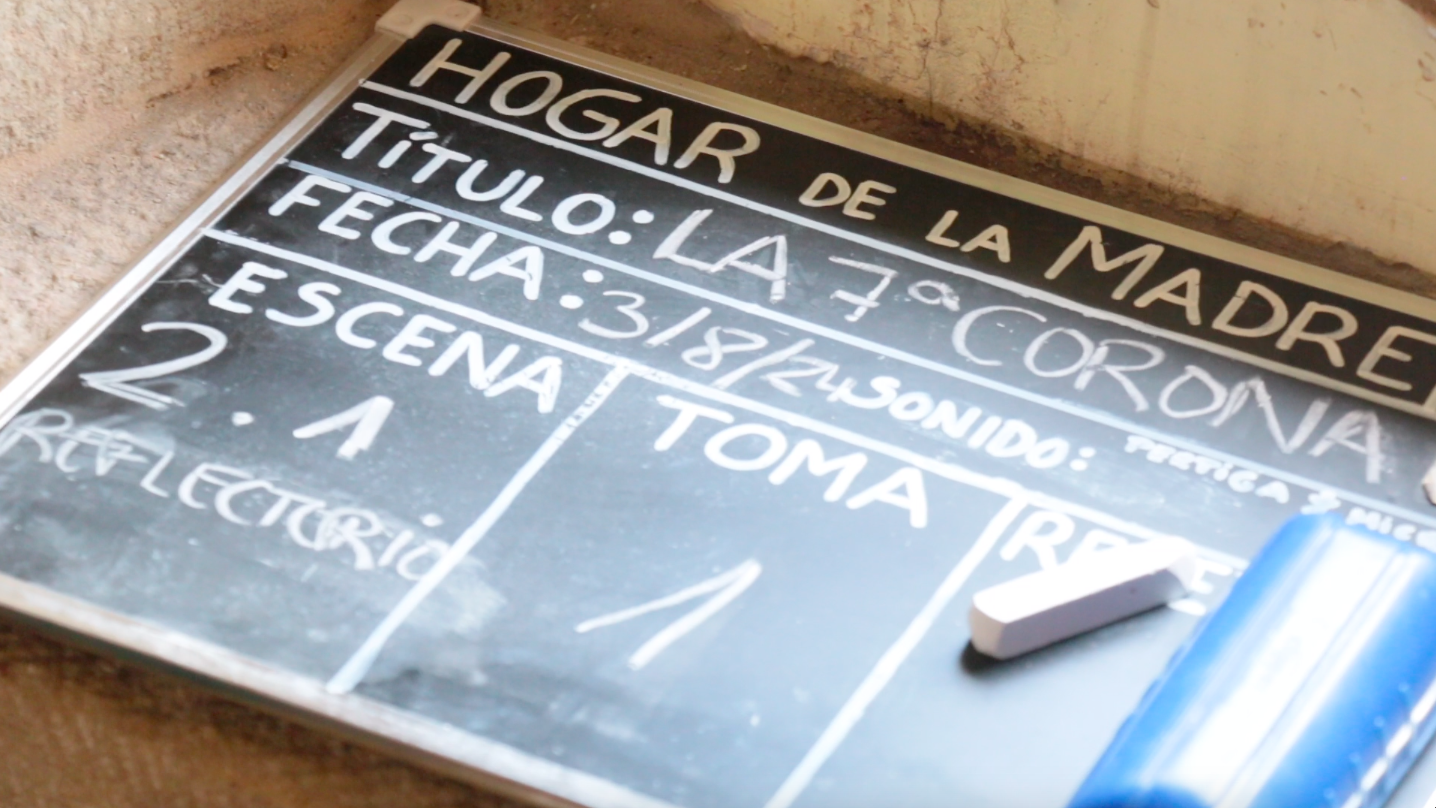 HOGAR DE LA MADRE
TÍTULO: LA 7ª CORONA
FECHA: 3/8/24 SONIDO: PERTIGA Y MICRO
ESCENA
2.1
REFLECTORIO
TOMA
1